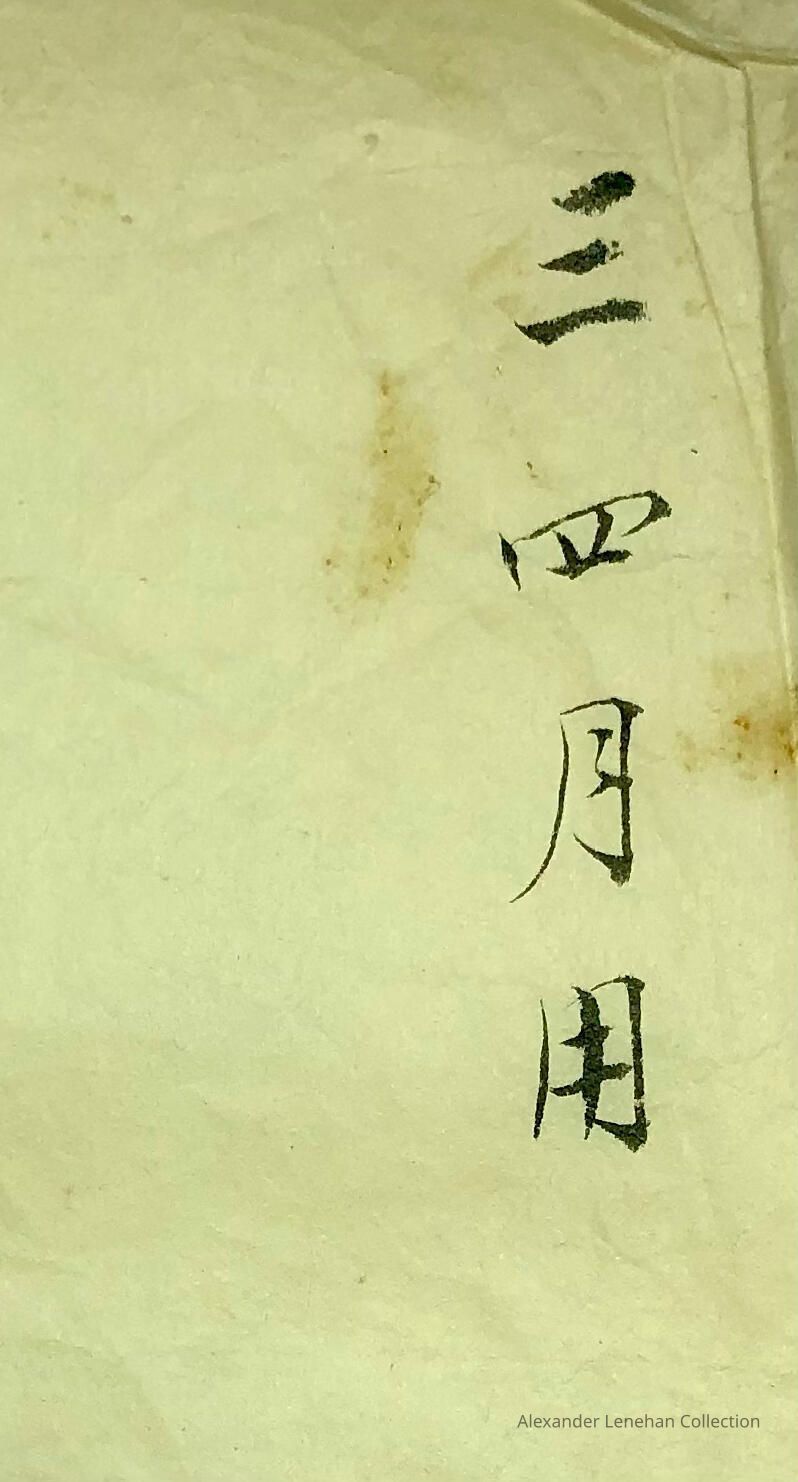 三四月用
Alexander Lenehan Collection